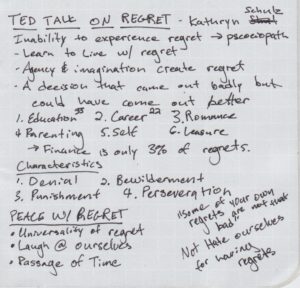 TED TALK ON REGRET - Kathryn Schulz
Inability to experience regret → pscociopath
- Learn to Live w/ regret
- Agency & imagination create regret
- A decision that came out badly but
could have come out better
1. Education 33 2. Career 22 3. Romance
4 Parenting 5. Self 6. Leasure
→ Finance is only 3% of regrets.
Characteristics
1. Denial 2. Bewilderment
3. Punishment 4. Perseveration
PEACE W/ REGRET
• Universality of regret
• Laugh @ ourselves
• Passage of Time
some of your own
regrets are not that
bad
Not Hate ourselves
for having
regrets